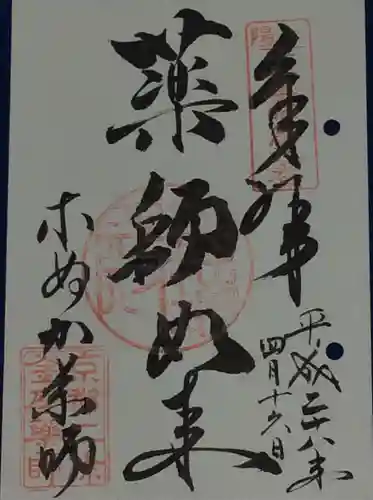 奉拝
平成二十八年
四月十六日
薬師如来
ホぬか薬師